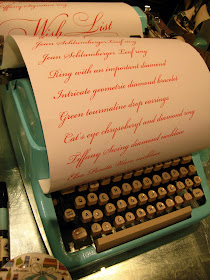 Wish List
Jean Schlumberger Leaf ring
Jean Schlumberger Leaf ring
Ring with an important diamond
Intricate geometric diamond bracelet
Green tourmaline drop earrings
Cat's eye chrysoberyl and diamond ring
Tiffany Swing diamond necklace